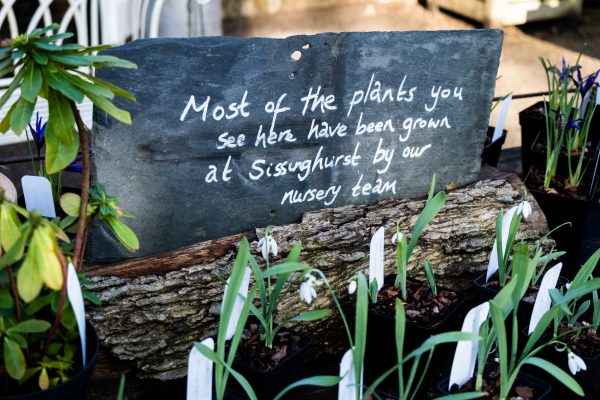 Most of the plants you
see here have been grown
at Sissinghurst by our
nursery team